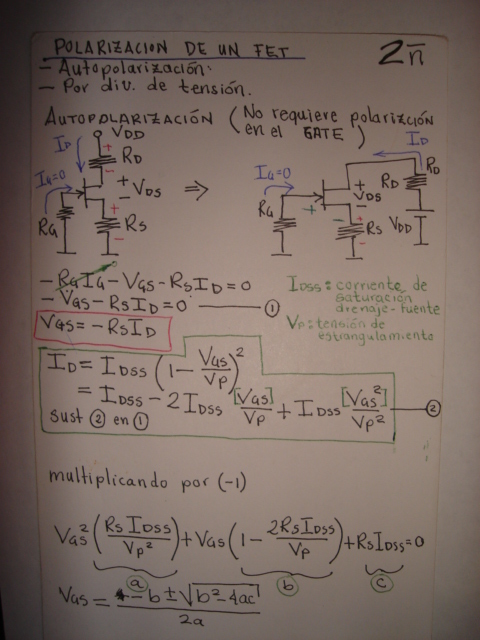 POLARIZACION DE UN FET
2n̅
- Autopolarización:
- Por div. de tensión.
AUTOPOLARIZACIÓN (No requiere polarización en el GATE)
VDD
ID
+
RD
-
IG=0
+
VDS
-
RG
+
RS
-
⇒
ID
RD
IG=0
RD
+
VDS
-
RG
+
-
+
RS
-
VDD
- RGIG - VGS - RSID = 0
- VGS - RSID = 0 ——— ①
VGS = - RSID
IDSS: corriente de
saturación
drenaje-fuente
VP: tensión de
estrangulamiento
ID = IDSS (1 - VGS/VP)²
= IDSS - 2IDSS [VGS]/VP + IDSS [VGS²]/VP² — ②
sust ② en ①
multiplicando por (-1)
VGS² (RS IDSS/VP²) + VGS (1 - 2RSIDSS/VP) + RSIDSS = 0
a b c
VGS = - b ± √b² - 4ac / 2a